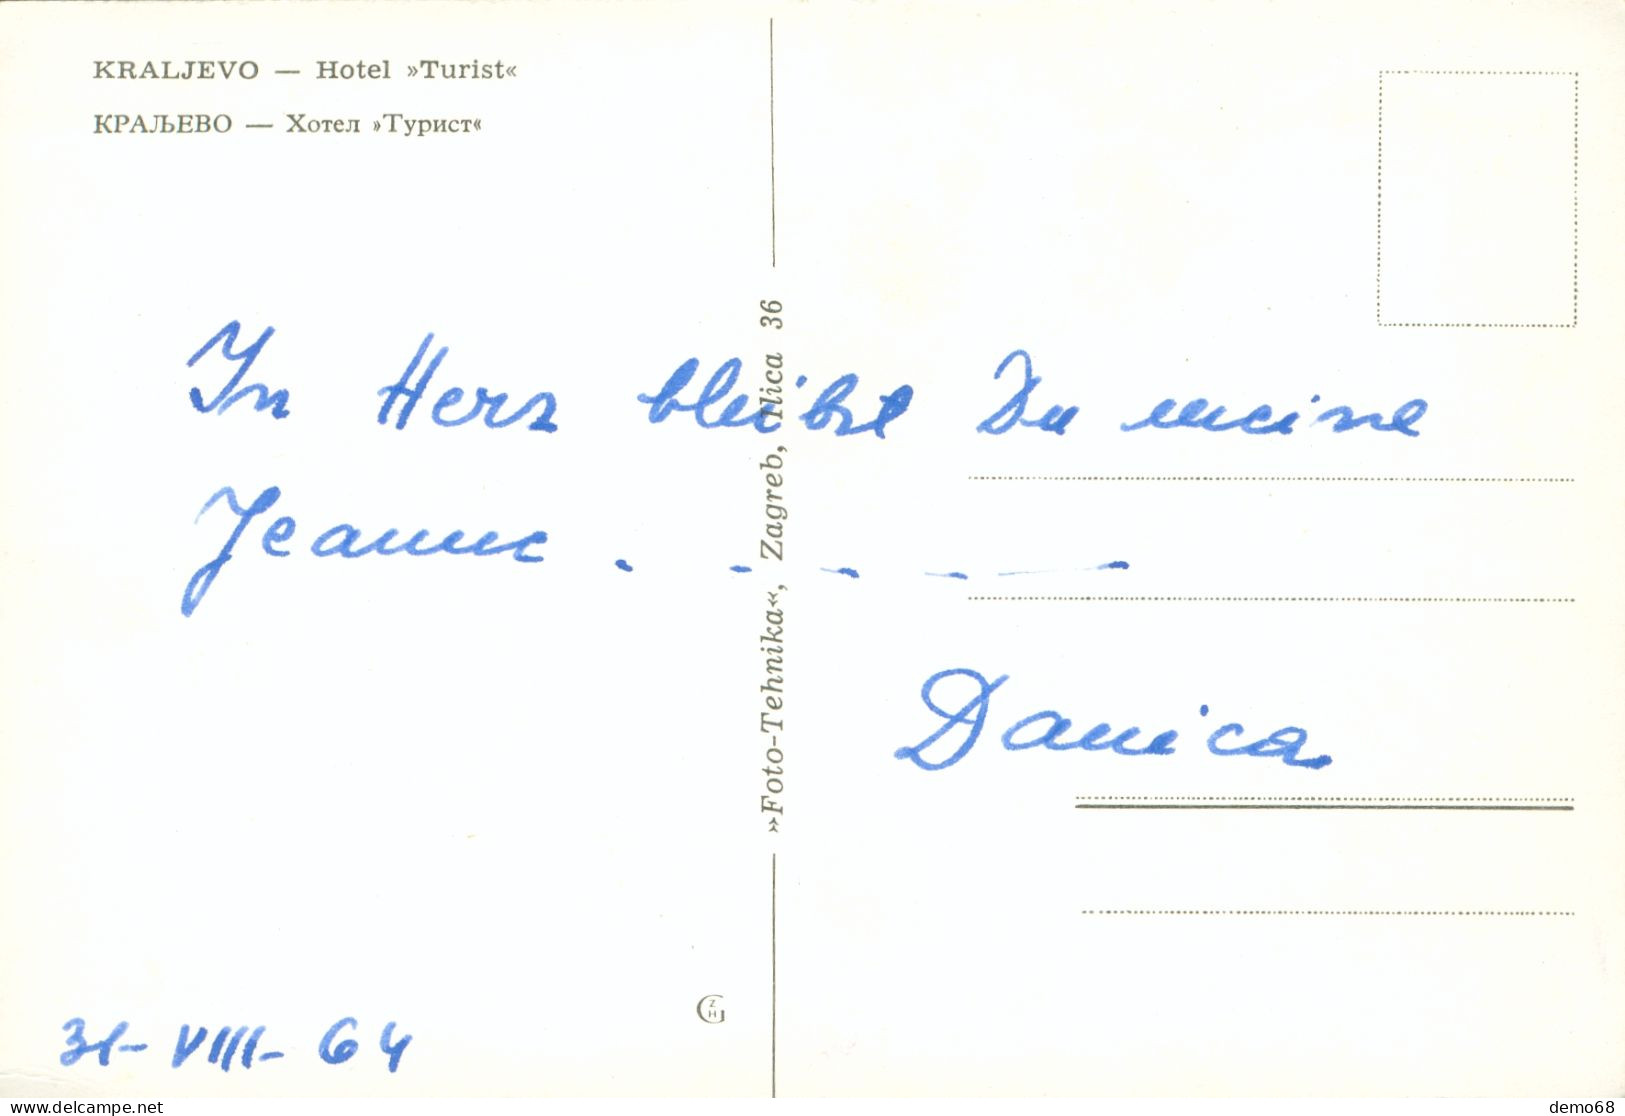 KRALJEVO — Hotel »Turist«
КРАЉЕВО — Хотел »Турист«
In Herz bleibst Du meine
Jeanne . - - - — -
Danica
31-VIII-64
»Foto-Tehnika«, Zagreb, Ilica 36
ZH
www.delcampe.net
demo68